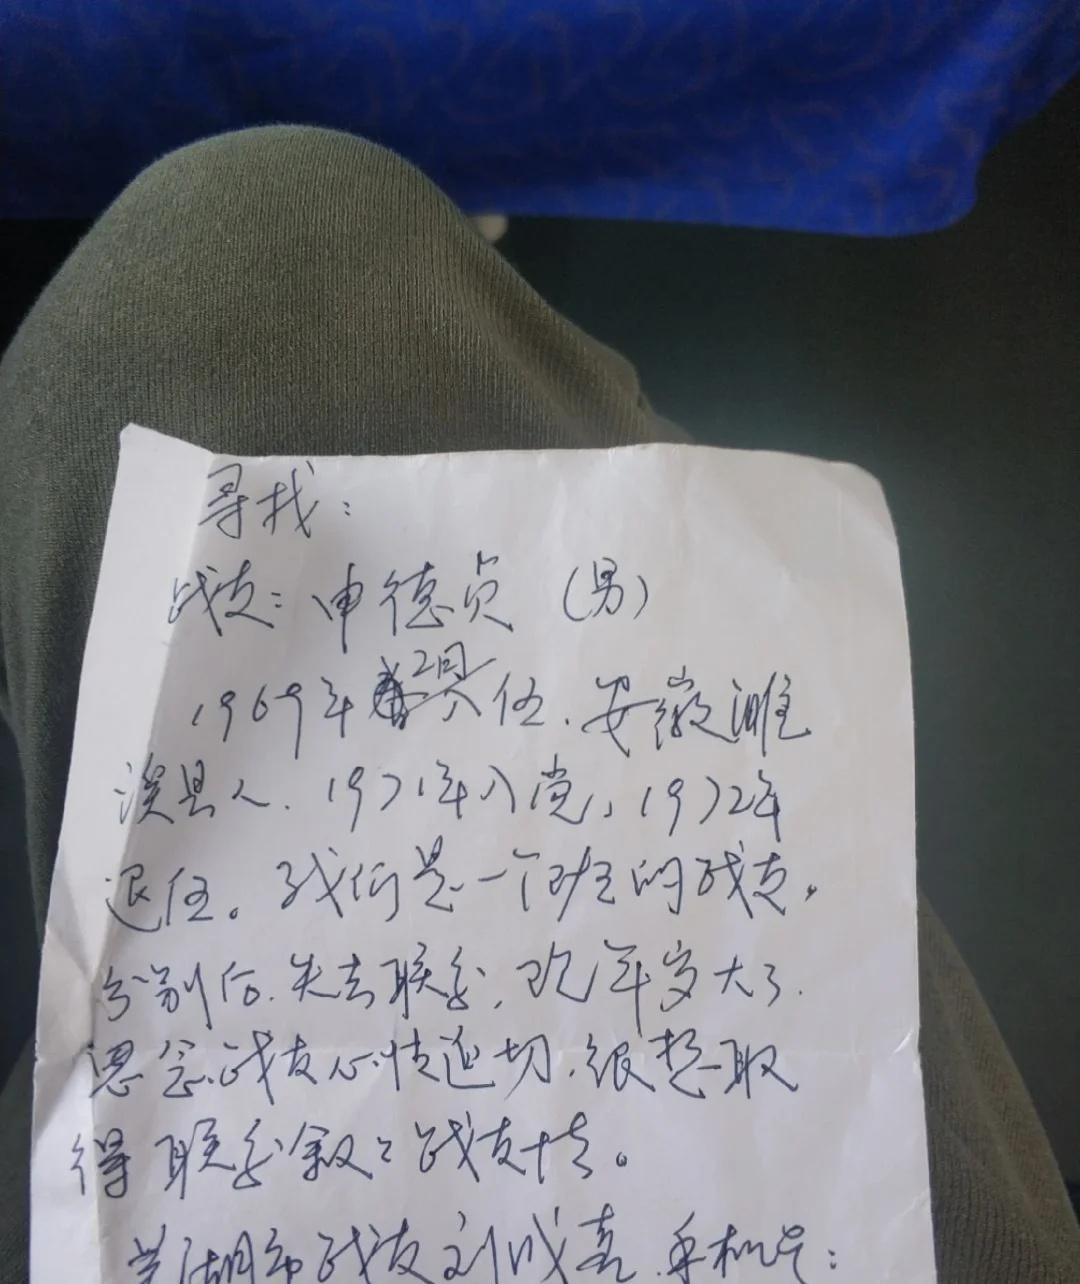 寻找：
战友：申德贞（男）
1969年2月入伍．安徽濉
溪县人．1971年入党，1972年
退伍。我们是一个班的战友。
分别后．失去联系，现年岁大了．
思念战友心情迫切．很想取
得联系叙々战友情。
芜湖市战友刘成喜．手机号：